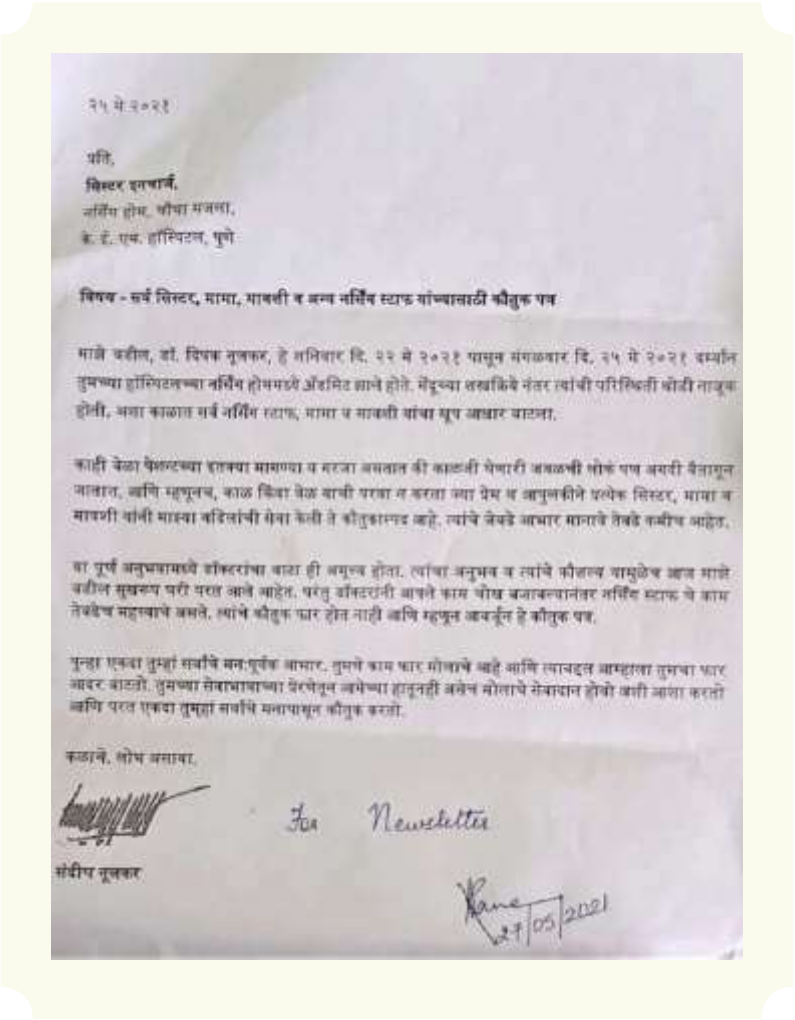 २५ मे २०२१
प्रति,
सिस्टर इनचार्ज,
नर्सिंग होम, चौथा मजला,
के. ई. एम. हॉस्पिटल, पुणे
विषय - सर्व सिस्टर, मामा, मावशी व अन्य नर्सिंग स्टाफ यांच्यासाठी कौतुक पत्र
माझे वडील, डॉ. दिपक नूलकर, हे शनिवार दि. २२ मे २०२१ पासून मंगळवार दि. २५ मे २०२१ दरम्यान
तुमच्या हॉस्पिटलच्या नर्सिंग होममध्ये अ‍ॅडमिट झाले होते. मेंदूच्या शस्त्रक्रिये नंतर त्यांची परिस्थिती थोडी नाजूक
होती, अशा काळात सर्व नर्सिंग स्टाफ, मामा व मावशी यांचा खूप आधार वाटला.
काही वेळा पेशन्टच्या इतक्या मागण्या व गरजा असतात की काळजी घेणारी जवळची लोकं पण अगदी वैतागून
जातात. आणि म्हणूनच, काळ किंवा वेळ याची परवा न करता ज्या प्रेम व आपुलकीने प्रत्येक सिस्टर, मामा व
मावशी यांनी माझ्या वडिलांची सेवा केली ते कौतुकास्पद आहे. त्यांचे जेवढे आभार मानावे तेवढे कमीच आहेत.
या पूर्ण अनुभवामध्ये डॉक्टरांचा वाटा ही अमूल्य होता. त्यांचा अनुभव व त्यांचे कौशल्य यामुळेच आज माझे
वडील सुखरूप घरी परत आले आहेत. परंतु डॉक्टरांनी आपले काम चोख बजावल्यानंतर नर्सिंग स्टाफ चे काम
तेवढेच महत्त्वाचे असते. त्यांचे कौतुक फार होत नाही आणि म्हणून आवर्जून हे कौतुक पत्र.
पुन्हा एकदा तुम्हां सर्वांचे मनःपूर्वक आभार. तुमचे काम फार मोलाचे आहे आणि त्याबद्दल आम्हाला तुमचा फार
आदर वाटतो. तुमच्या सेवाभावाच्या प्रेरणेतून आमेच्या हातूनही असेच मोलाचे सेवादान होवो अशी आशा करतो
आणि परत एकदा तुम्हां सर्वांचे मनापासून कौतुक करतो.
कळावे. लोभ असावा.
For Newsletter
संदीप नूलकर
27/05/2021